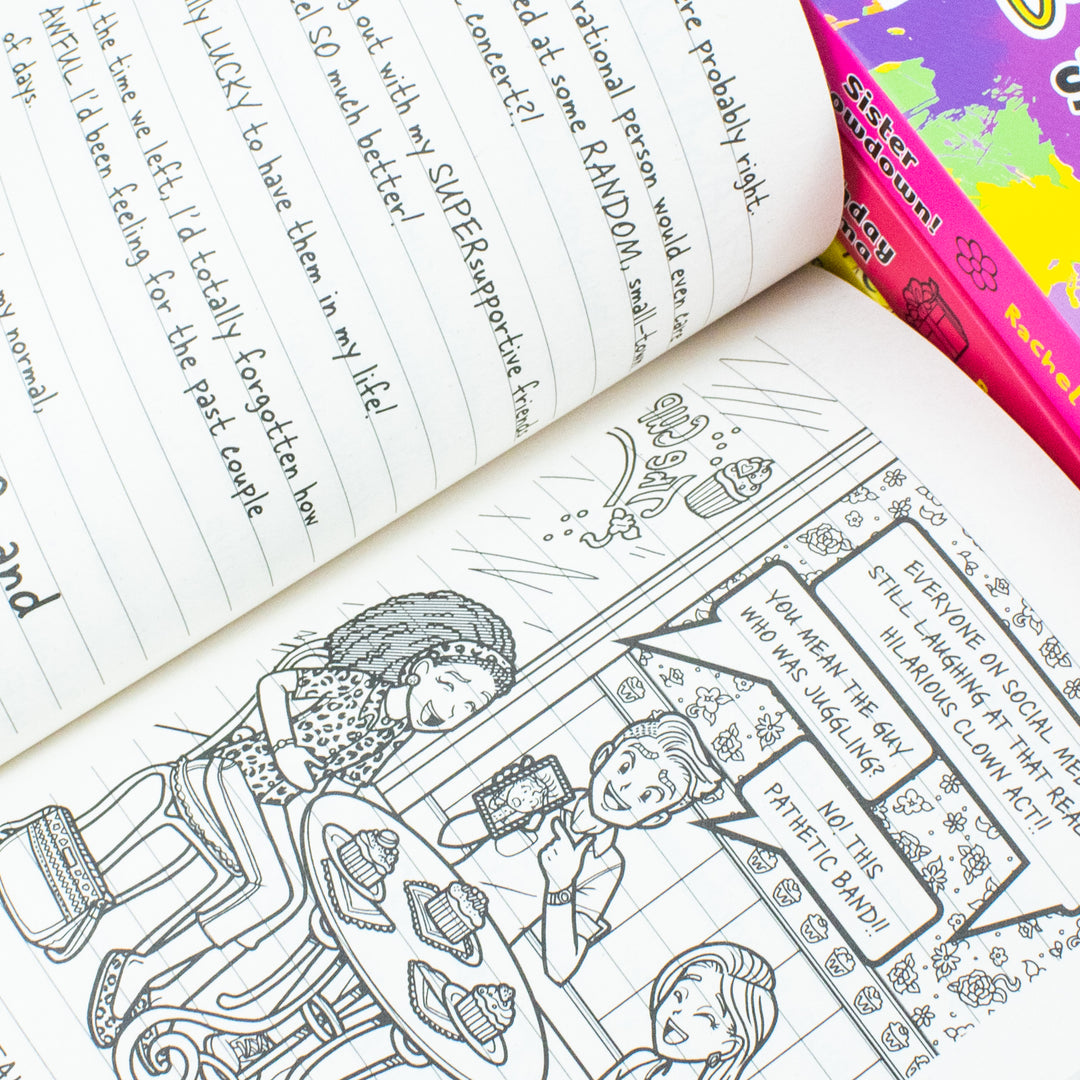 probably right.
rational person would even care
at some RANDOM, small-town
concert?!
out with my SUPERsupportive friends
SO much better!
LUCKY to have them in my life!
the time we left, I'd totally forgotten how
AWFUL I'd been feeling for the past couple
of days.
my normal,
and
EVERYONE ON SOCIAL
STILL LAUGHING AT THAT
HILARIOUS CLOWN ACT!!
YOU MEAN THE GUY
WHO WAS JUGGLING?
NO! THIS
PATHETIC BAND!!
Sister
owdown!
Rachel